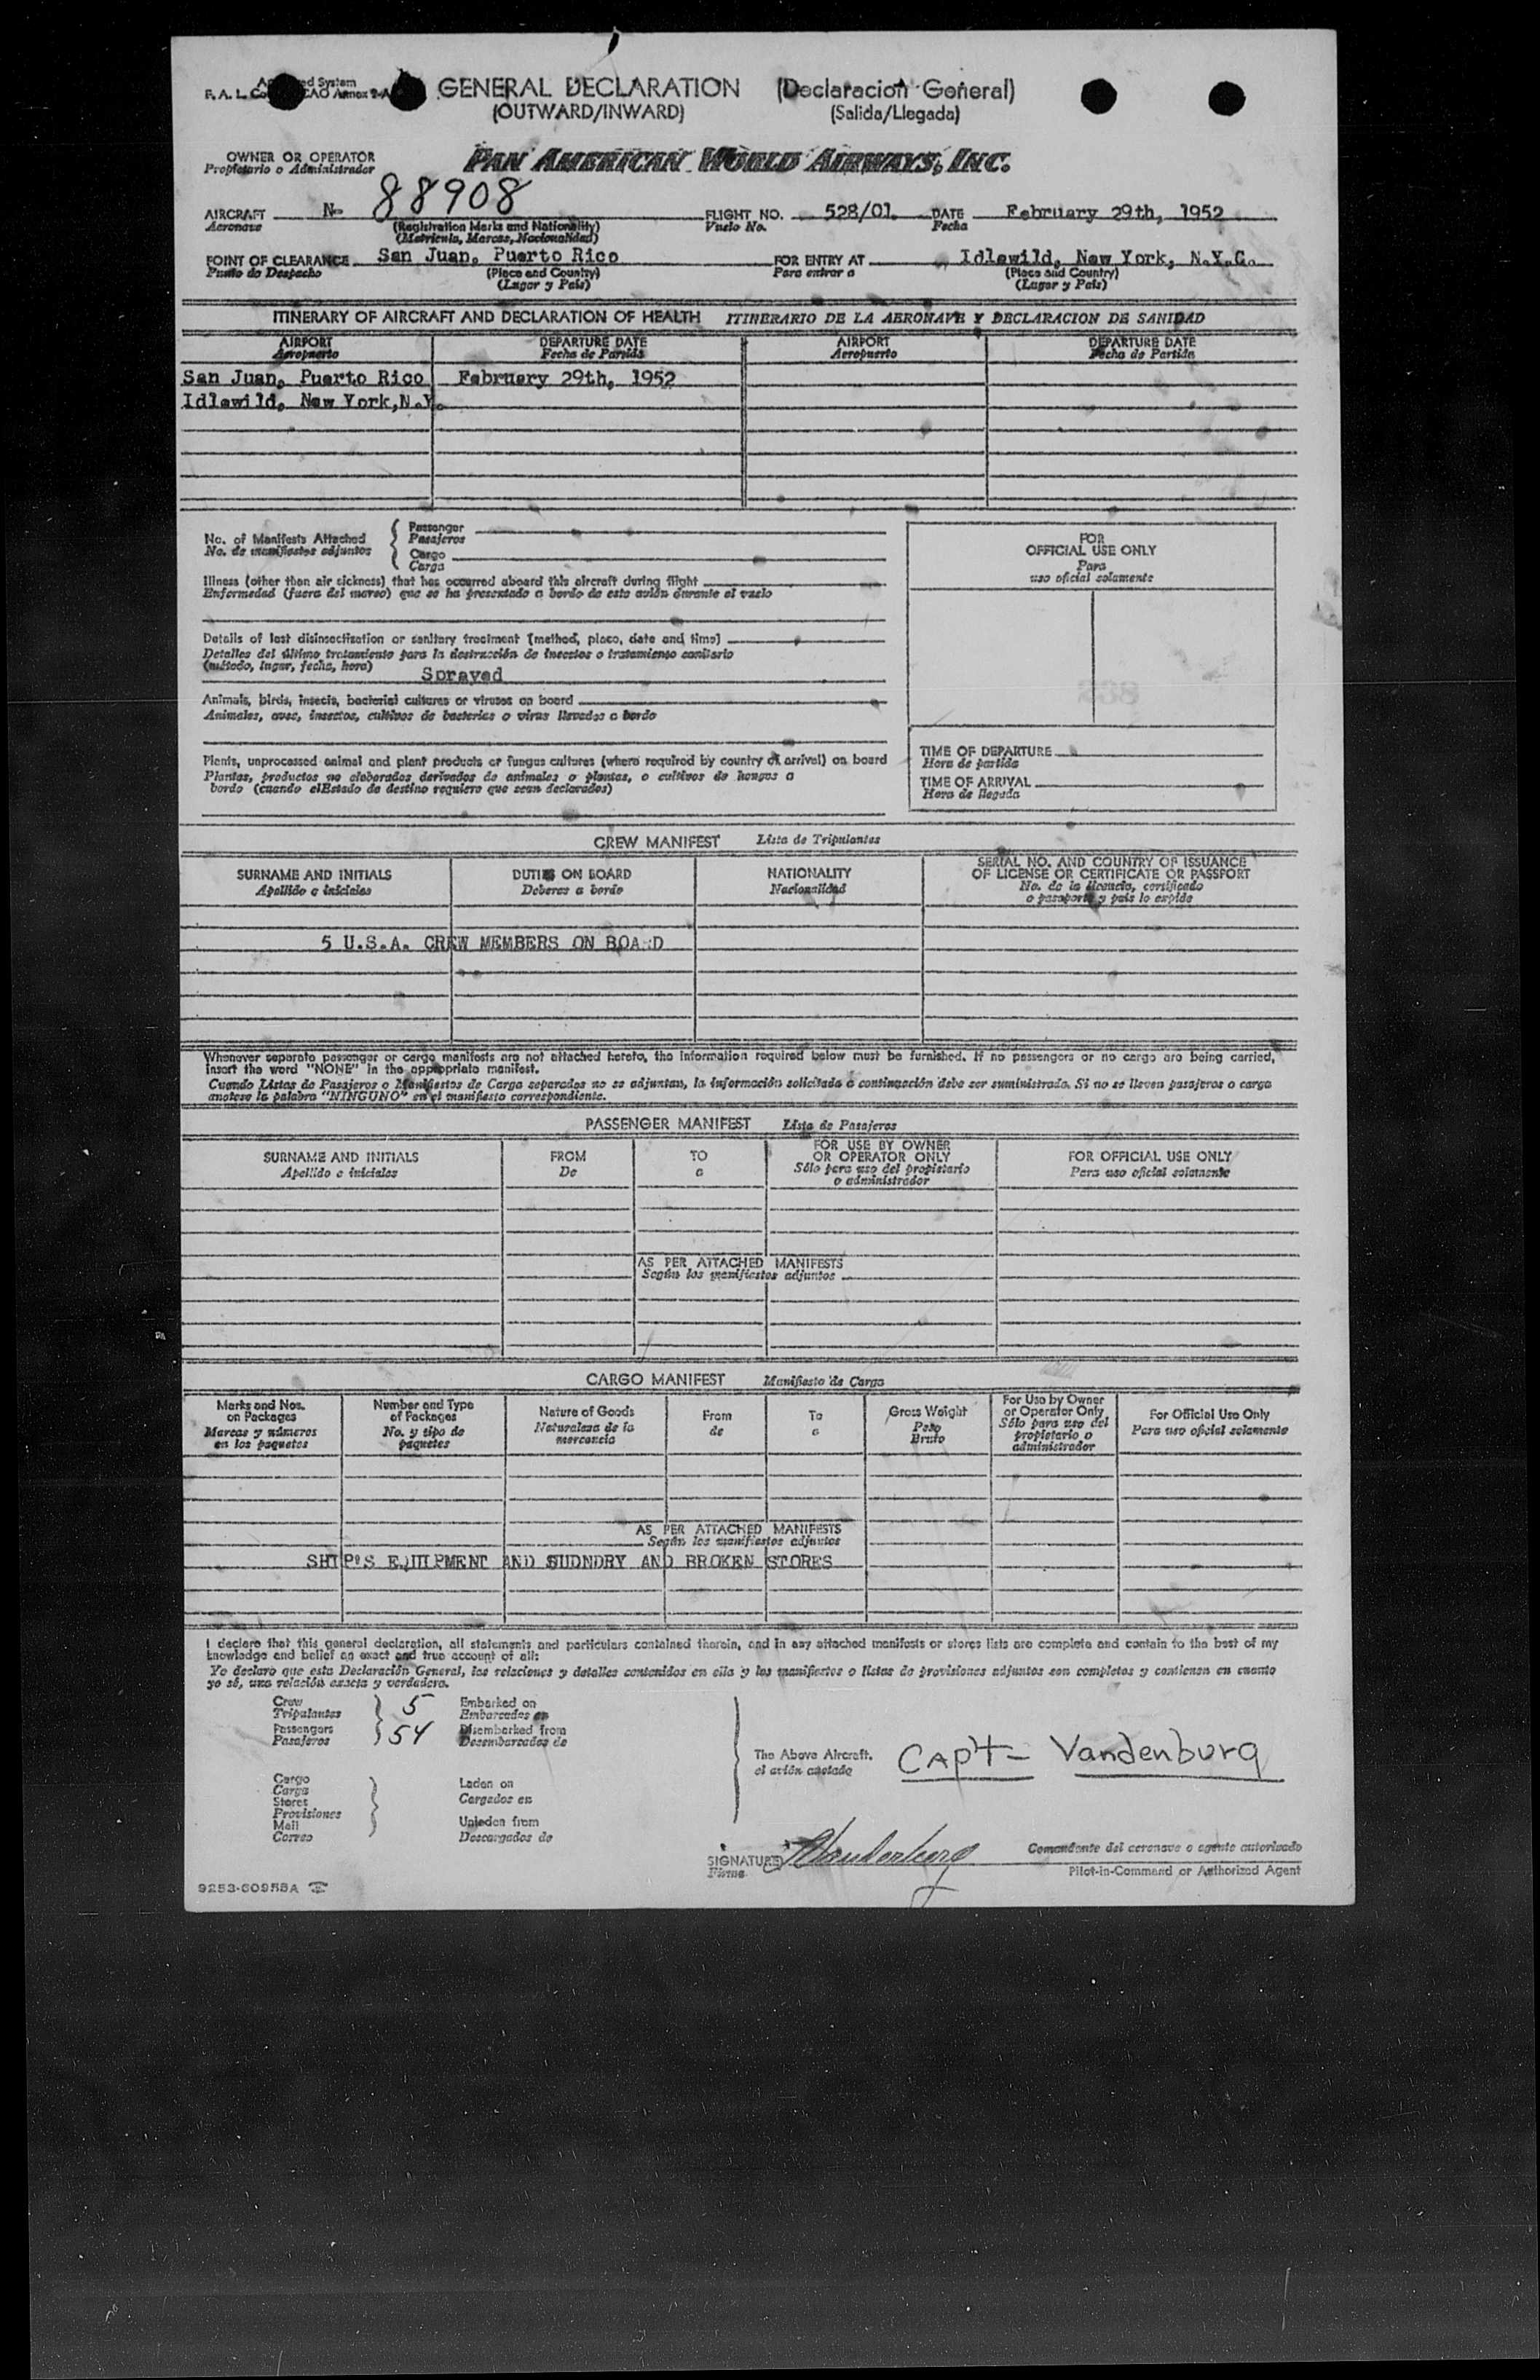 GENERAL DECLARATION (Declaracion General)
(OUTWARD/INWARD) (Salida/Llegada)
OWNER OR OPERATOR
Propietario o Administrador
PAN AMERICAN WORLD AIRWAYS, INC.
AIRCRAFT N- 88908 FLIGHT NO. 528/01 DATE February 29th, 1952
Aeronave (Registration Marks and Nationality) Vuelo No. Fecha
(Matricula, Marcas, Nacionalidad)
POINT OF CLEARANCE San Juan, Puerto Rico FOR ENTRY AT Idlewild, New York, N.Y.C.
Punto de Despacho (Place and Country) Para entrar a (Place and Country)
(Lugar y País) (Lugar y País)
ITINERARY OF AIRCRAFT AND DECLARATION OF HEALTH ITINERARIO DE LA AERONAVE Y DECLARACION DE SANIDAD
AIRPORT DEPARTURE DATE AIRPORT DEPARTURE DATE
Aeropuerto Fecha de Partida Aeropuerto Fecha de Partida
San Juan, Puerto Rico February 29th, 1952
Idlewild, New York,N.Y.
No. of Manifests Attached Passenger
No. de manifiestos adjuntos Pasajeros
Cargo
Carga
Illness (other than air sickness) that has occurred aboard this aircraft during flight
Enfermedad (fuera del mareo) que se ha presentado a bordo de este avión durante el vuelo
Details of last disinsectization or sanitary treatment (method, place, date and time)
Detalles del último tratamiento para la destrucción de insectos o tratamiento sanitario
(método, lugar, fecha, hora)
Sprayed
Animals, birds, insects, bacterial cultures or viruses on board
Animales, aves, insectos, cultivos de bacterias o virus llevados a bordo
Plants, unprocessed animal and plant products or fungus cultures (where required by country of arrival) on board
Plantas, productos no elaborados derivados de animales o plantas, o cultivos de hongos a
bordo (cuando elEstado de destino requiere que sean declarados)
FOR
OFFICIAL USE ONLY
Para
uso oficial solamente
TIME OF DEPARTURE
Hora de partida
TIME OF ARRIVAL
Hora de llegada
CREW MANIFEST Lista de Tripulantes
SURNAME AND INITIALS DUTIES ON BOARD NATIONALITY SERIAL NO. AND COUNTRY OF ISSUANCE
Apellido e iniciales Deberes a bordo Nacionalidad OF LICENSE OR CERTIFICATE OR PASSPORT
No. de la licencia, certificado
o pasaporte y país lo expide
5 U.S.A. CREW MEMBERS ON BOARD
Whenever separate passenger or cargo manifests are not attached hereto, the information required below must be furnished. If no passengers or no cargo are being carried,
insert the word "NONE" in the appropriate manifest.
Cuando Listas de Pasajeros o Manifiestos de Carga separados no se adjuntan, la información solicitada a continuación debe ser suministrada. Si no se llevan pasajeros o carga
anotese la palabra "NINGUNO" en el manifiesto correspondiente.
PASSENGER MANIFEST Lista de Pasajeros
SURNAME AND INITIALS FROM TO FOR USE BY OWNER FOR OFFICIAL USE ONLY
Apellido e iniciales De a OR OPERATOR ONLY Para uso oficial solamente
Sólo para uso del propietario
o administrador
AS PER ATTACHED MANIFESTS
Según los manifiestos adjuntos
CARGO MANIFEST Manifiesto de Carga
Marks and Nos. Number and Type Nature of Goods From To Gross Weight For Use by Owner For Official Use Only
on Packages of Packages Naturaleza de la de a Peso or Operator Only Para uso oficial solamente
Marcas y números No. y tipo de mercancia Bruto Sólo para uso del
en los paquetes paquetes propietario o
administrador
AS PER ATTACHED MANIFESTS
Según los manifiestos adjuntos
SHIP'S EQUIPMENT AND SUDNDRY AND BROKEN STORES
I declare that this general declaration, all statements and particulars contained therein, and in any attached manifests or stores lists are complete and contain to the best of my
knowledge and belief an exact and true account of all:
Yo declaro que esta Declaración General, las relaciones y detalles contenidos en ella y los manifiestos o listas de provisiones adjuntos son completos y contienen en cuanto
yo sé, una relación exacta y verdadera.
Crew 5 Embarked on
Tripulantes Embarcados en
Passengers 54 Disembarked from
Pasajeros Desembarcados de
The Above Aircraft. CAPt- Vandenburg
el avión anotado
Cargo Laden on
Carga Cargados en
Stores
Provisiones
Mail Unladen from
Correo Descargados de
SIGNATURE Vandenburg Comandante del aeronave o agente autorizado
Firma Pilot-in-Command or Authorized Agent
9253-60955A